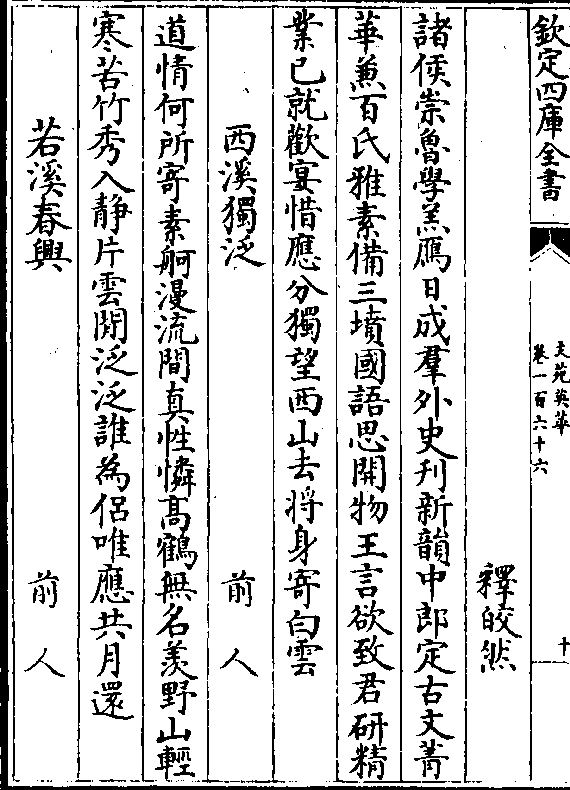 欽定四庫全書
文苑英華
卷一百六十六
十
釋皎然
諸侯崇魯學羔鴈日成羣外史刋新韻中郎定古文菁
華兼百氏雅素備三墳國語思開物王言欲致君研精
業已就歡宴惜應分獨望西山去將身寄白雲
西溪獨泛 前人
道情何所寄素舸漫流間真性憐髙鶴無名羨野山輕
寒苦竹秀入靜片雲閒泛泛誰為侶唯應共月還
若溪春興 前人